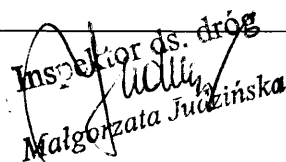 Inspektor ds. dróg
Małgorzata Judzińska